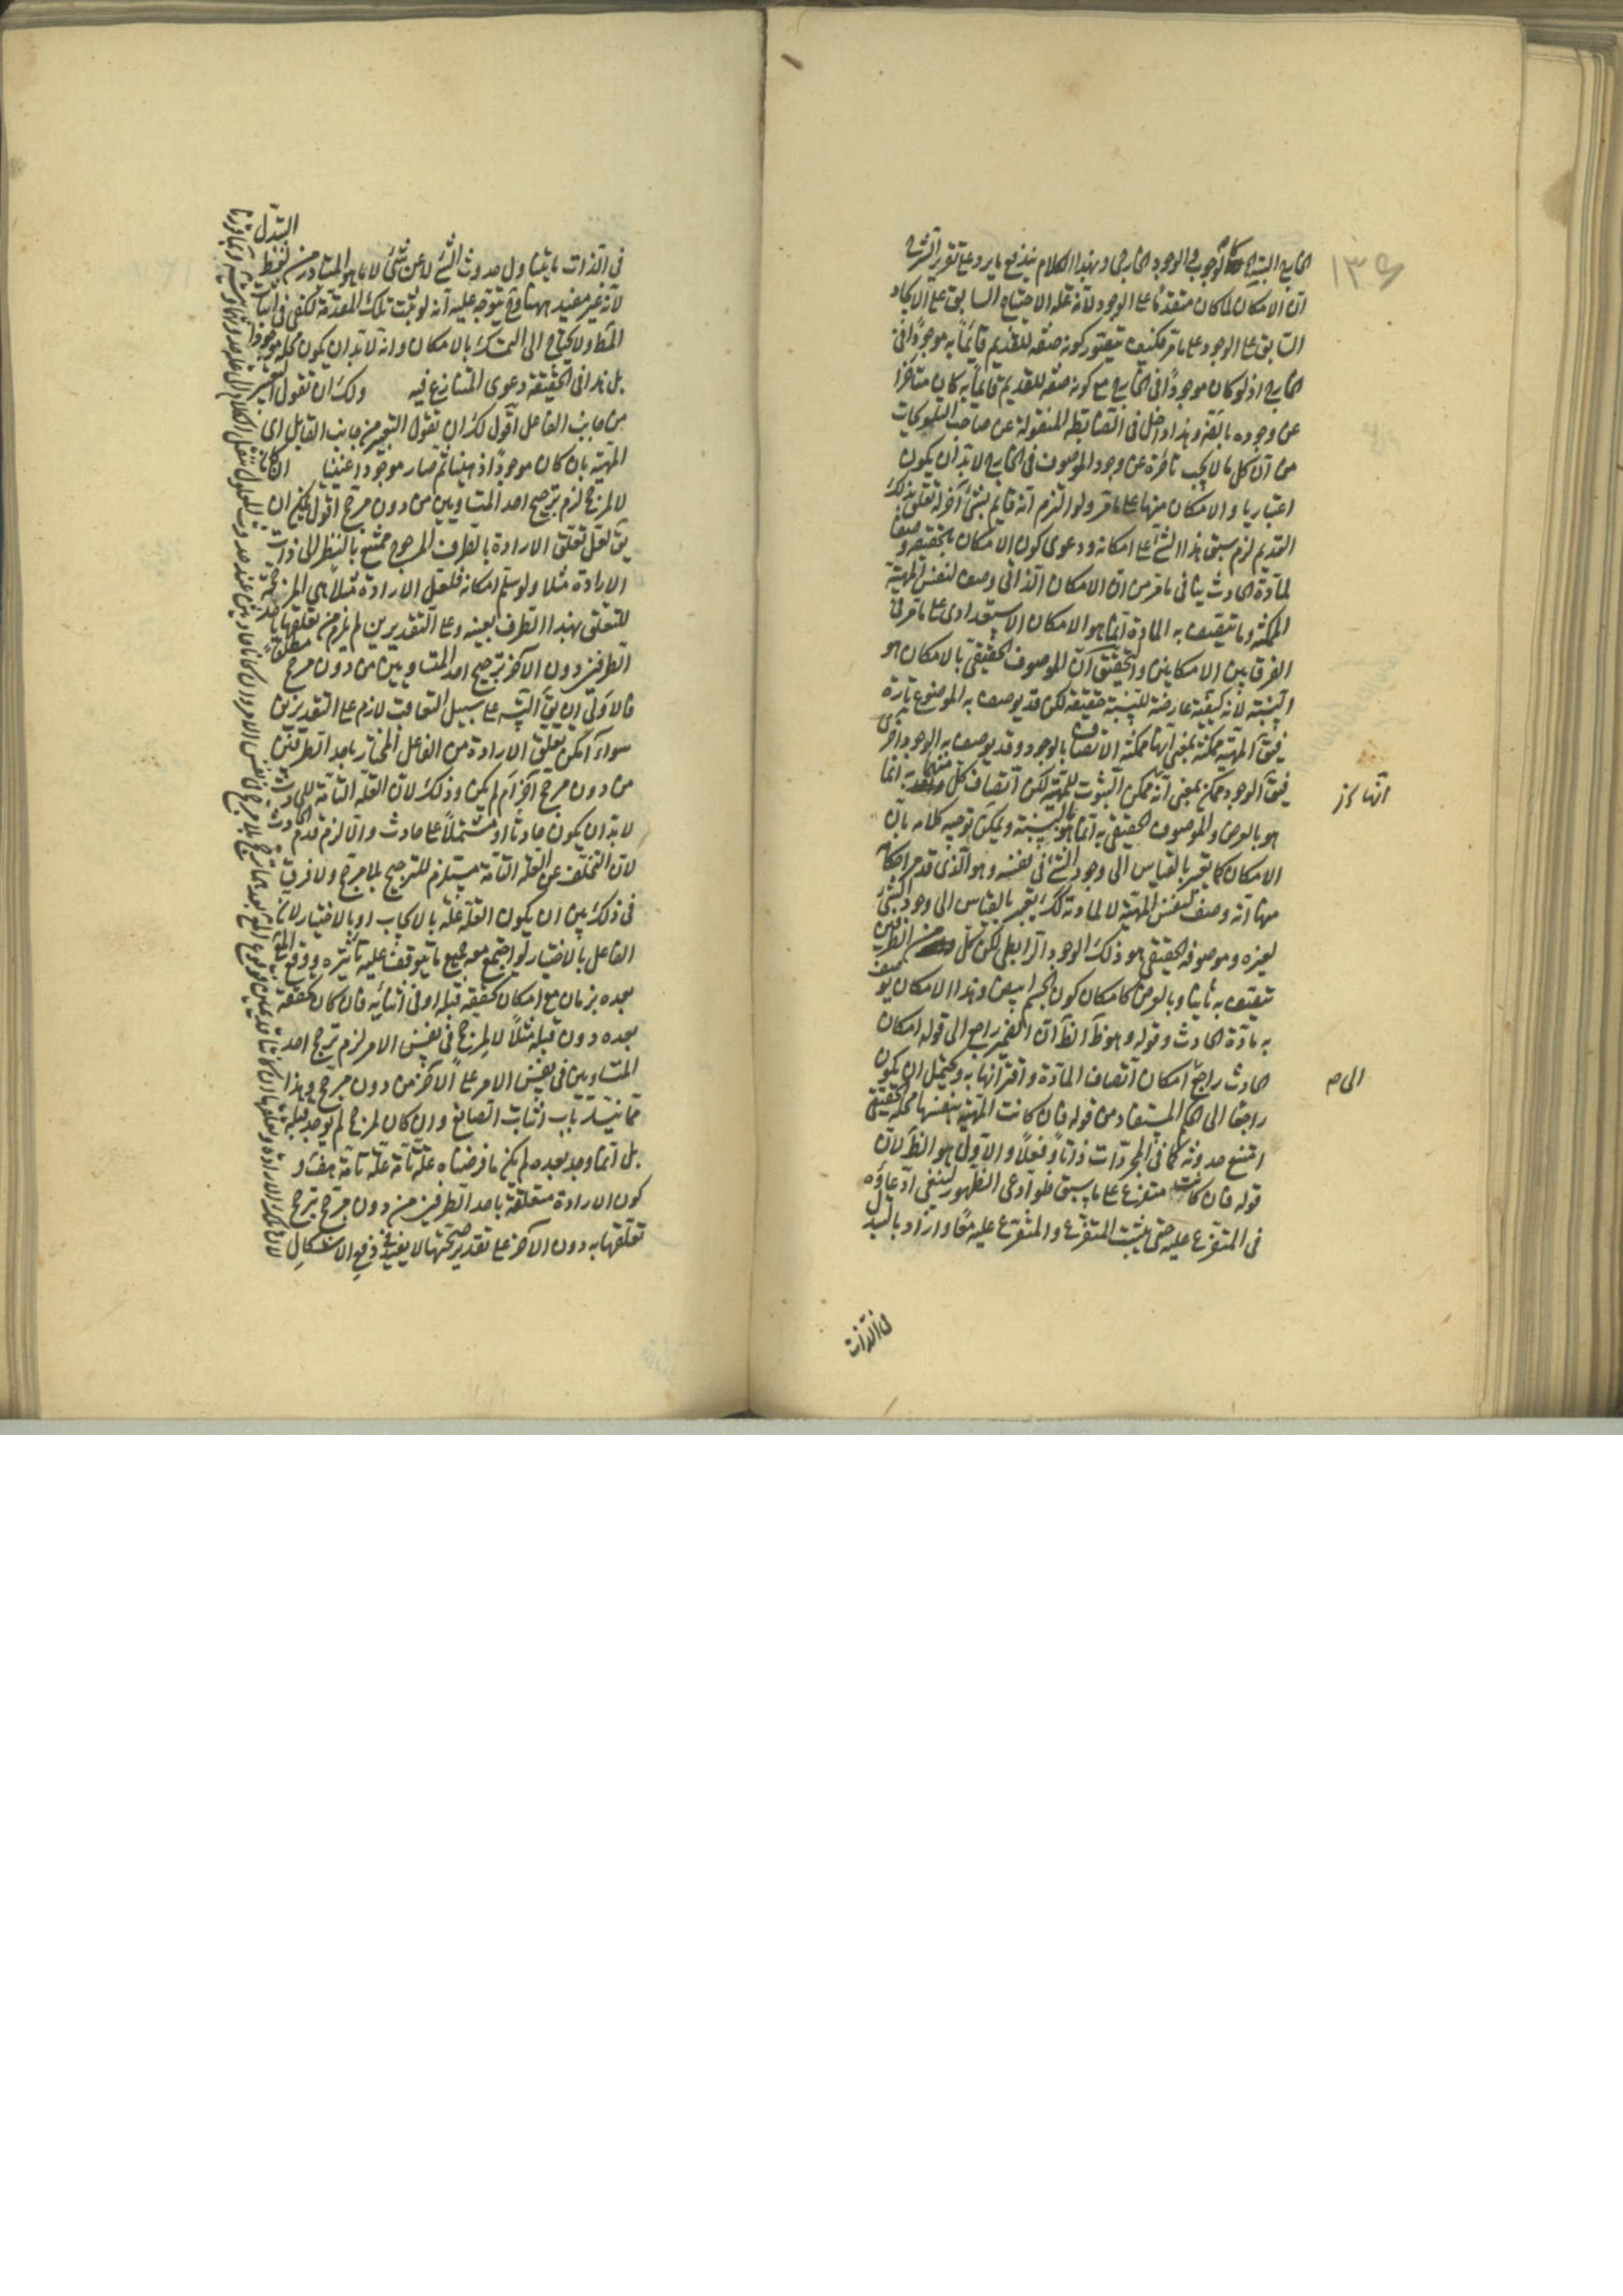 ١٣٩
الخارج البتة كالوجوب والوجود الخارجي وبهذا الكلام يندفع ما يرد على تقرير الشرح
ان الامكان لما كان متقدما على الوجود لانه علة الاحتياج السابق على الايجاد
السابق على الوجود على ما مر فكيف يتصور كونه صفة للقديم قائما به موجودا في
الخارج اذ لو كان موجودا في الخارج مع كونه صفة للقديم قائما به كان متاخرا
عن وجوده بالقوة وهذا داخل في الضابطة المنقولة عن صاحب التلويحات
من ان كل ما لا يجب تاخره عن وجود الموصوف في الخارج لا بد ان يكون
اعتباريا والامكان منها على ما مر ولو التزم انه قائم بشئ آخر له تعلق بذلك
القديم لزم سبق هذا الشئ على امكانه ودعوى كون الامكان بالحقيقة وصفا
لمادة الحادث ينافي ما مر من ان الامكان الذاتي وصف لنفس المهية
الممكنة وما يتصف به المادة انما هو الامكان الاستعدادى على ما مر في
الفرق بين الامكانين والتحقيق ان الموصوف الحقيقي بالامكان هو
النسبة لانه كيفية عارضة للنسبة حقيقة لكن قد يوصف به الموضوع تارة
فيق المهية ممكنة بمعنى انها ممكنة الاتصاف بالوجود وقد يوصف به الوجود اخرى
فيق الوجود ممكن بمعنى انه ممكن الثبوت للمهية لكن اتصاف كل منهما به انما
هو بالعرض والموصوف الحقيقي به انما هو النسبة ويمكن توجيه كلامه بان
الامكان كما يعتبر بالقياس الى وجود الشئ في نفسه وهو الذى قد مر احكامه
منها انه وصف لنفس المهية لا لمادته كذلك يعتبر بالقياس الى وجود الشئ
لغيره وموصوفه الحقيقي هو ذلك الوجود الرابطي لكن كل من الطرفين
يتصف به ثانيا وبالعرض كامكان كون الجسم ابيض وهذا الامكان يوصف
به مادة الحادث وقوله وهو ظ الظ ان الضمير راجع الى قوله امكان
الحادث راجع امكان اتصاف المادة واقترانها به ويحتمل ان يكون
راجعا الى الحكم المستفاد من قوله فان كانت المهية بنفسها محله الحقيقي
امتنع حدوثه كما في المجردات ذاتا وفعلا والاول هو الظ لان
قوله فان كانت متفرع على ما سبق فلو ادعى الظهور لينبغي ادعاؤه
في المتفرع عليه حتى يثبت المتفرع والمتفرع عليه معا واراد بالتبدل
انها
الى م
في الذات
في الذات ما يتناول حدوث الشئ لا عن شئ لا ما هو المتبادر من لفظ
التبدل
لانه غير مفيد ههنا وح يتوجه عليه انه لو ثبت تلك المقدمة لكفى في اثبات
المط ولا يحتاج الى التمسك بالامكان وانه لا بد ان يكون محله موجودا
بل هذا في الحقيقة دعوى المتنازع فيه ولك ان تقول التغير
من جانب الفاعل اقول لك ان تقول التغير من جانب القابل اى
المهية بان كان موجودا ذهنيا ثم صار موجودا عينيا ان كان
لا لمرجح لزم ترجيح احد المتساويين من دون مرجح اقول يمكن ان
يق لعل تعلق الارادة بالطرف المرجوح ممتنع بالنظر الى ذات
الارادة مثلا ولو سلم امكانه فلعل الارادة مثلا هي المرجحة
للتعلق بهذا الطرف بعينه وعلى التقديرين لم يلزم من تعلقها باحد
الطرفين دون الآخر ترجيح احد المتساويين من دون مرجح مطلقا
فالاولى ان يق التسلسل على سبيل التعاقب لازم على التقديرين
سواء امكن تعلق الارادة من الفاعل المختار باحد الطرفين
من دون مرجح آخر ام لم يمكن وذلك لان العلة التامة للحادث
لا بد ان يكون حادثا او مشتملا على حادث والا لزم قدم الحادث
لان التخلف عن العلة التامة مستلزم للترجيح بلا مرجح ولا فرق
في ذلك بين ان يكون العلة علة بالايجاب او بالاختيار لان
الفاعل بالاختيار لو اجتمع معه جميع ما يتوقف عليه تاثيره ووقع المع
بعده بزمان مع امكان تحققه قبله او في اثنائه فان كان تحققه
بعده دون قبله مثلا لا لمرجح في نفس الامر لزم ترجح احد
المتساويين في نفس الامر على الآخر من دون مرجح وهذا
مما ينسد باب اثبات الصانع وان كان لمرجح لم يوجد قبله
بل انما وجد بعده لم يكن ما فرضناه علة تامة علة تامة هف و
كون الارادة متعلقة باحد الطرفين من دون مرجح يرجح
تعلقها به دون الآخر على تقدير صحتها لا يفيد في دفع الاشكال